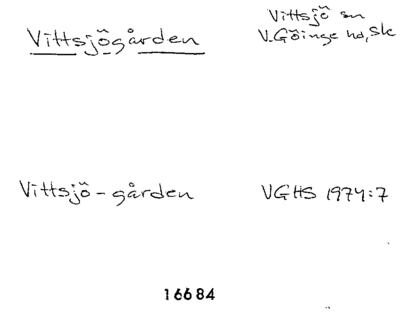 Vittsjögården
Vittsjö sn
V. Göinge hd, Sk
Vittsjö-gården
VGHS 1974:7
16684